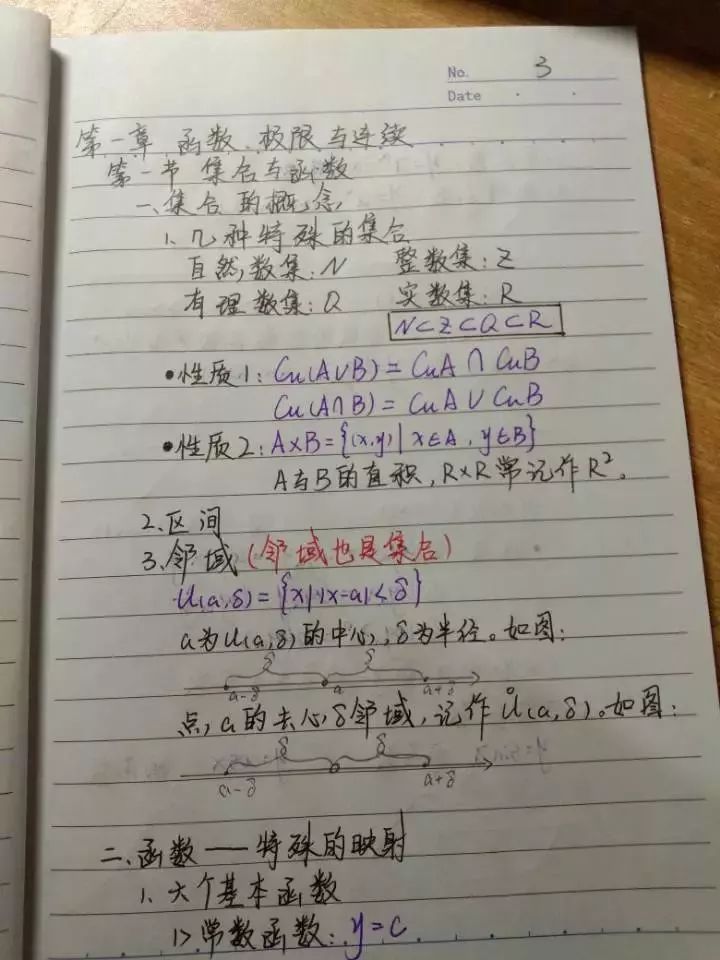 No. 3
Date
第一章 函数、极限与连续
第一节 集合与函数
一、集合的概念
1、几种特殊的集合
自然数集:N 整数集:Z
有理数集:Q 实数集:R
N⊂Z⊂Q⊂R
•性质1:Cu(A∪B)=CuA∩CuB
Cu(A∩B)=CuA∪CuB
•性质2:A×B={(x,y)|x∈A,y∈B}
A与B的直积,R×R常记作R²。
2、区间
3、邻域(邻域也是集合)
U(a,δ)={x||x-a|<δ}
a为U(a,δ)的中心,δ为半径。如图:
δ δ
a-δ a a+δ
点a的去心δ邻域,记作Ů(a,δ)。如图:
δ δ
a-δ a+δ
二、函数——特殊的映射
1、六个基本函数
1>常数函数:y=c